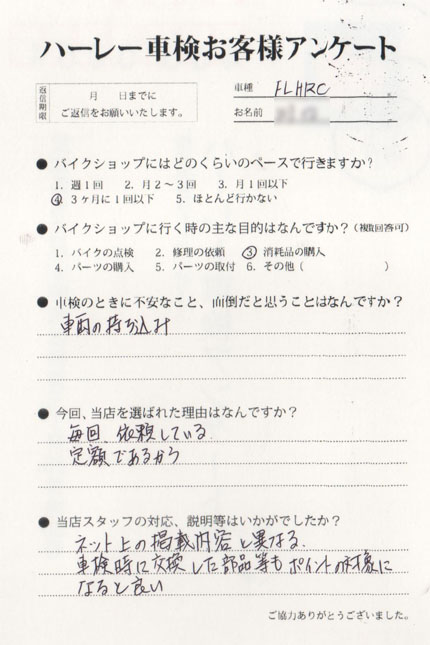 ハーレー車検お客様アンケート
返信期限
月 日までに
ご返信をお願いいたします。
車種 FLHRC
お名前
● バイクショップにはどのくらいのペースで行きますか?
1. 週1回 2. 月2〜3回 3. 月1回以下
④ 3ヶ月に1回以下 5. ほとんど行かない
● バイクショップに行く時の主な目的はなんですか?(複数回答可)
1. バイクの点検 2. 修理の依頼 ③ 消耗品の購入
4. パーツの購入 5. パーツの取付 6. その他( )
● 車検のときに不安なこと、面倒だと思うことはなんですか?
車両の持ち込み
● 今回、当店を選ばれた理由はなんですか?
毎回、依頼している.
定額であるから
● 当店スタッフの対応、説明等はいかがでしたか?
ネット上の掲載内容と異なる.
車検時に交換した部品等もポイントの対象に
なると良い
ご協力ありがとうございました。